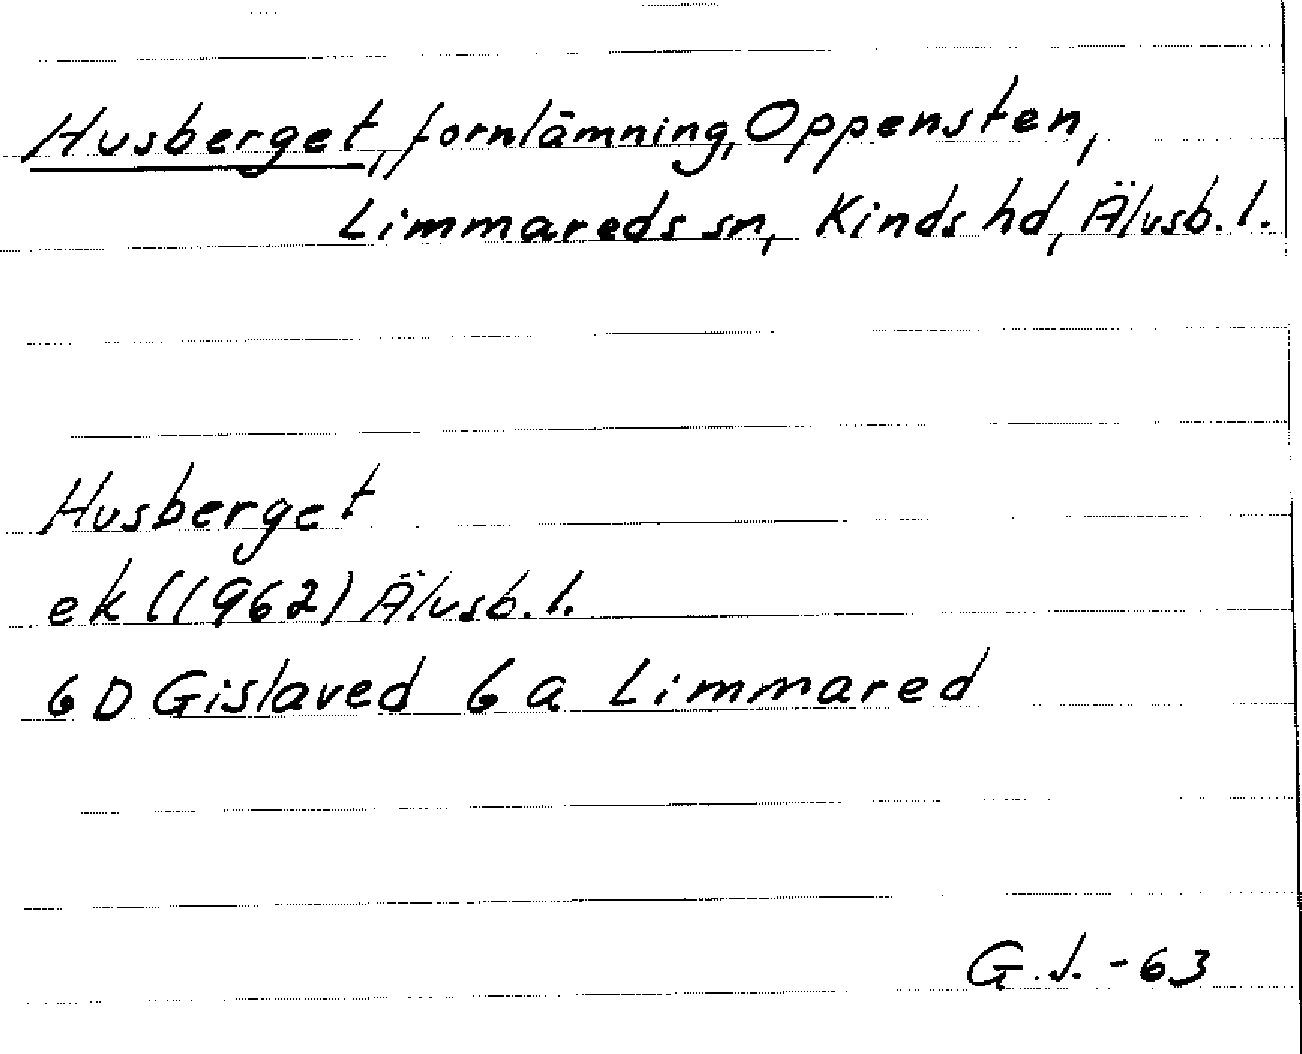 Husberget, fornlämning, Oppensten,
Limmareds sn, Kinds hd, Älvsb. l.
Husberget
ek (1962) Älvsb. l.
6 D Gislaved 6 a Limmared
G. J. -63